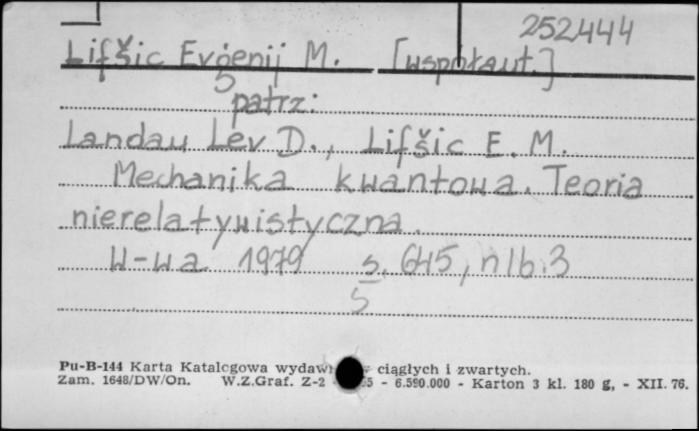 252444
Lifšic Evgenij M. [współaut.]
5
patrz:
Landau Lev D., Lifšic E. M.
Mechanika kwantowa. Teoria
nierelatywistyczna.
W-wa 1979 s. 645, nlb. 3
5
Pu-B-144 Karta Katalogowa wydaw ciągłych i zwartych.
Zam. 1648/DW/On. W.Z.Graf. Z-2 5 - 6.590.000 - Karton 3 kl. 180 g, - XII. 76.